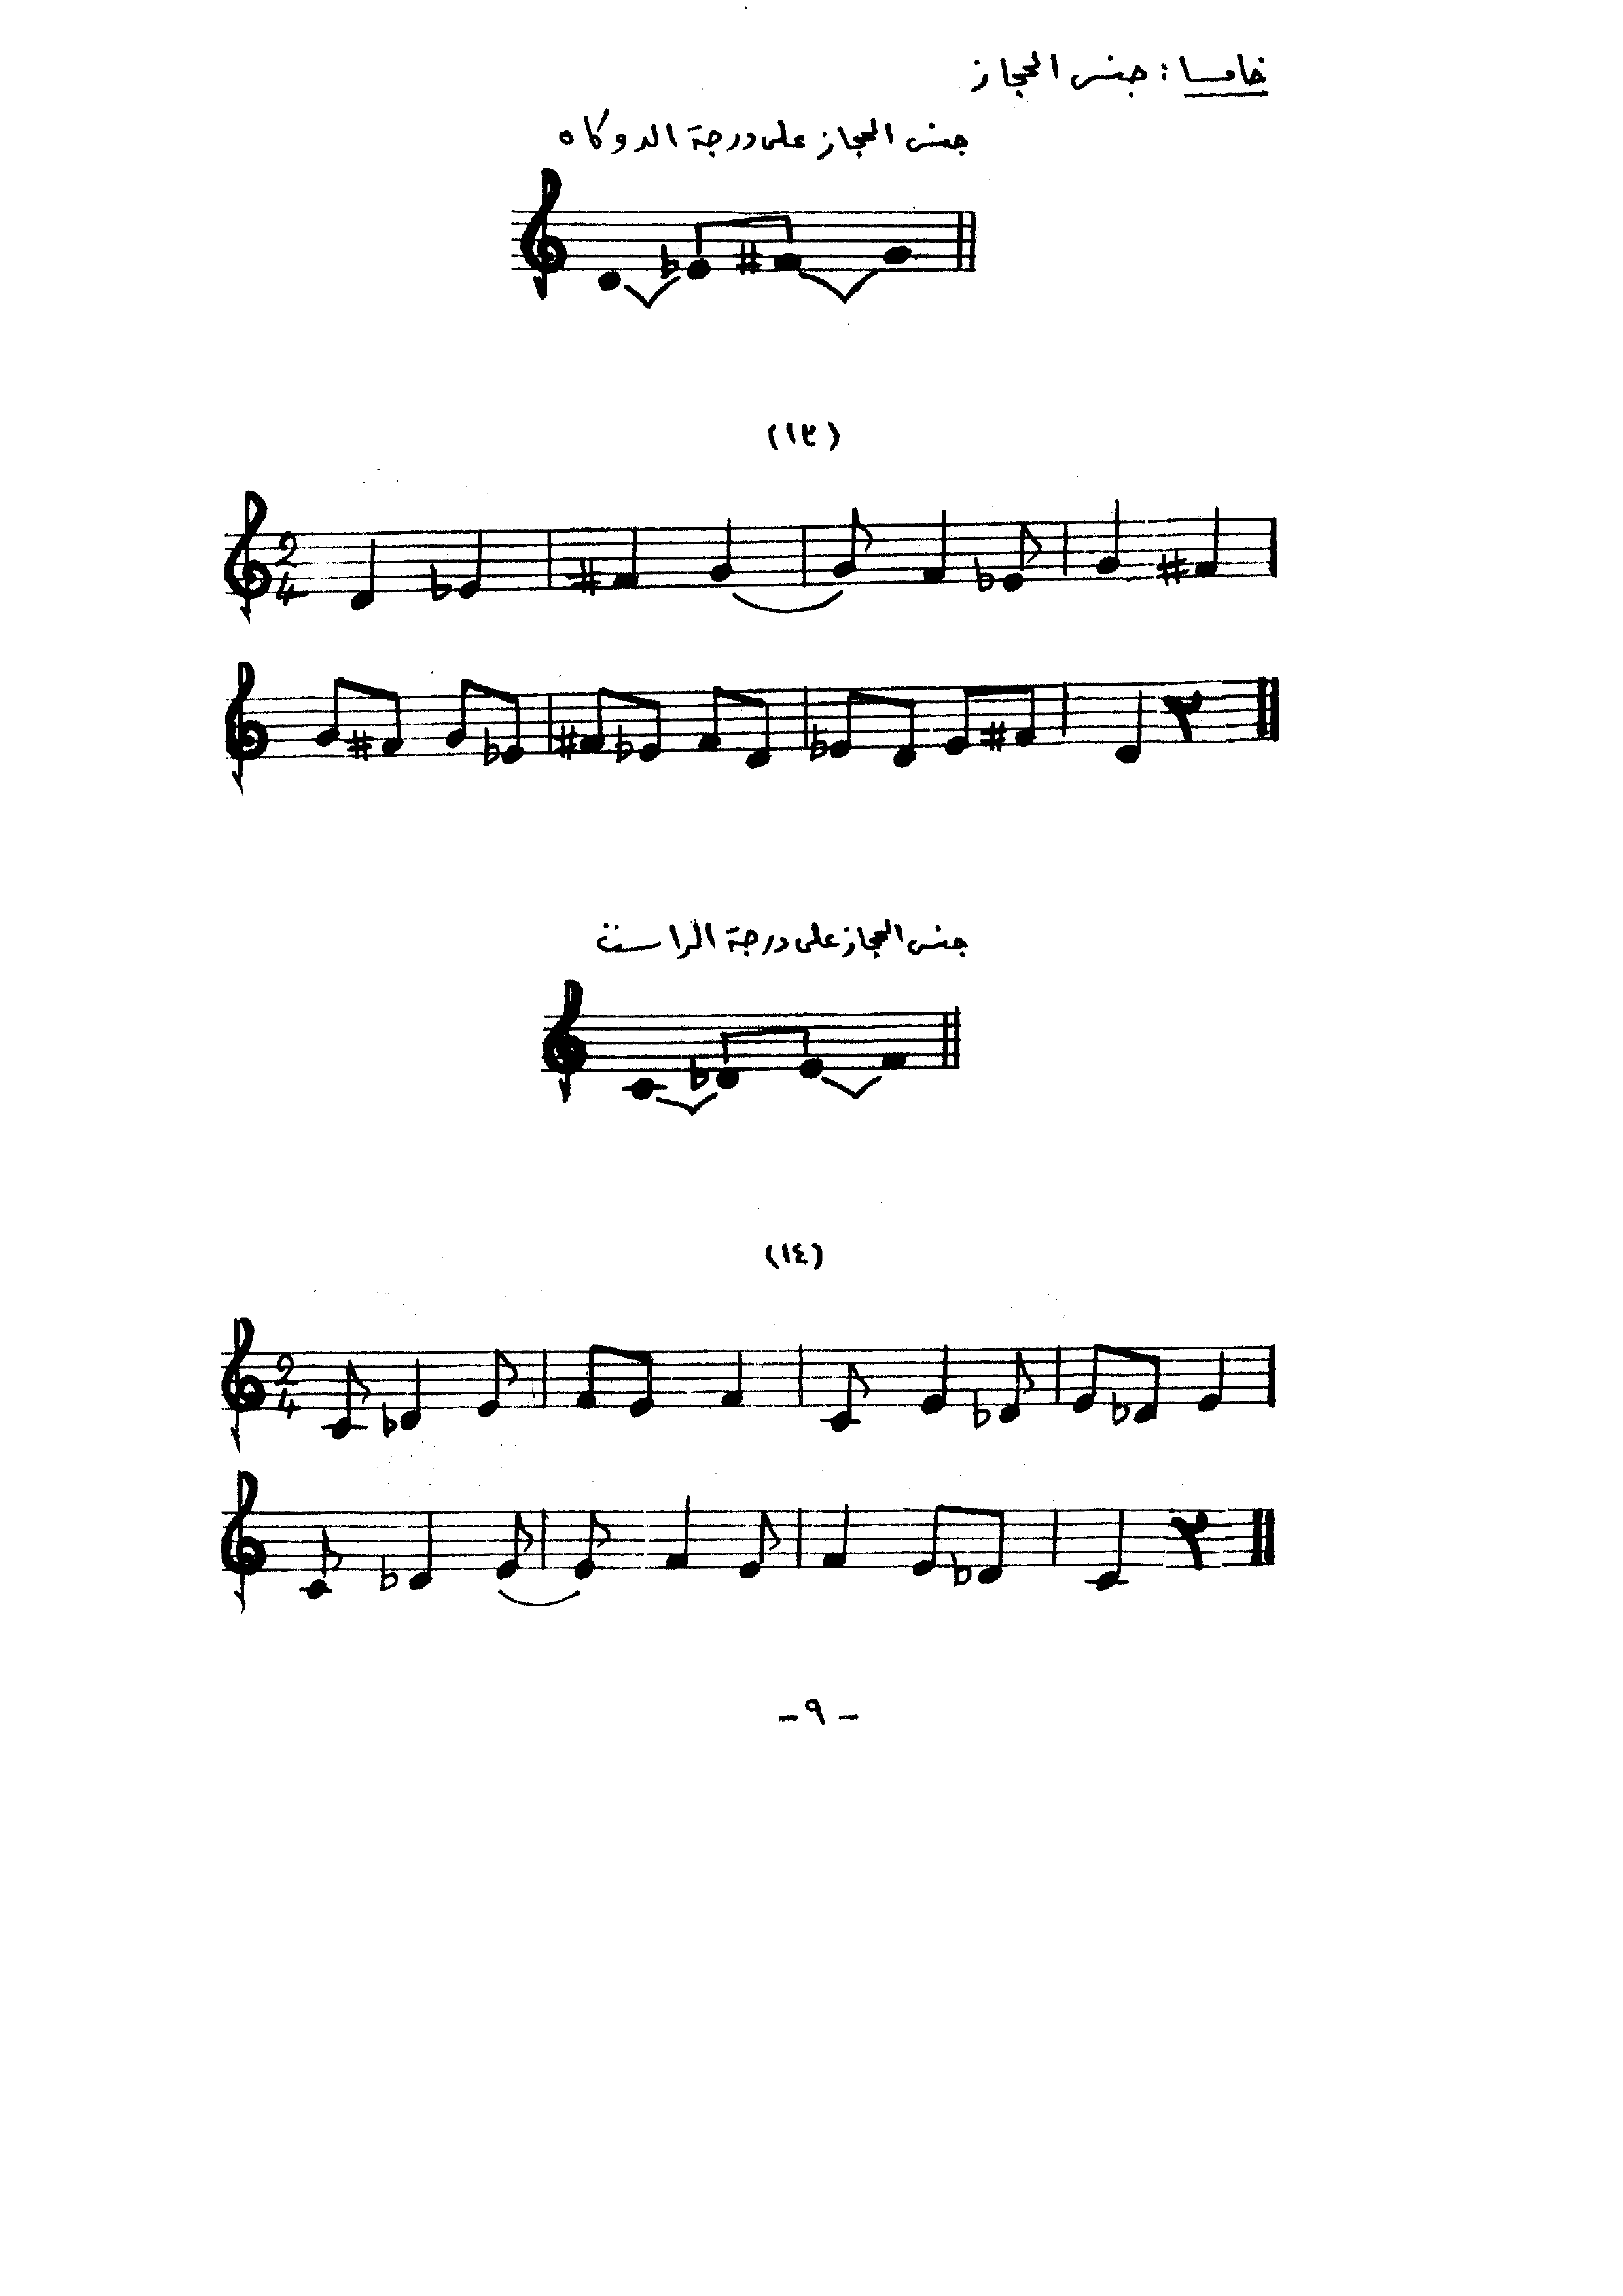 خامسا : جنس الحجاز
جنس الحجاز على درجة الدوكاه
(١٣)
2
4
جنس الحجاز على درجة الراست
(١٤)
2
4
- ٩ -